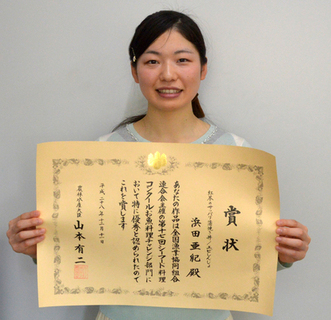 賞状
浜田亜紀殿
あなたの作品は全国漁業協同組合
連合会主催の第十七回シーフード料理
コンクールお魚料理チャレンジ部門に
おいて特に優秀と認められたので
これを賞します
平成二十八年十一月十一日
農林水産大臣
山本有二